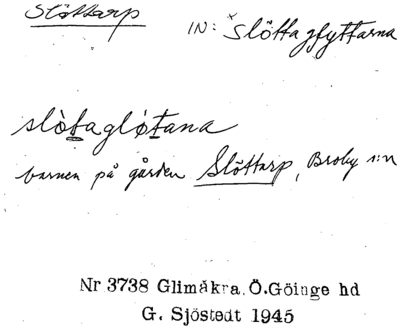 Slättarp
IN: × Slöttagfyttarna
slòtaglótana
barnen på gården Slöttarp, Broby s:n
Nr 3738 Glimåkra. Ö.Göinge hd
G. Sjöstedt 1945